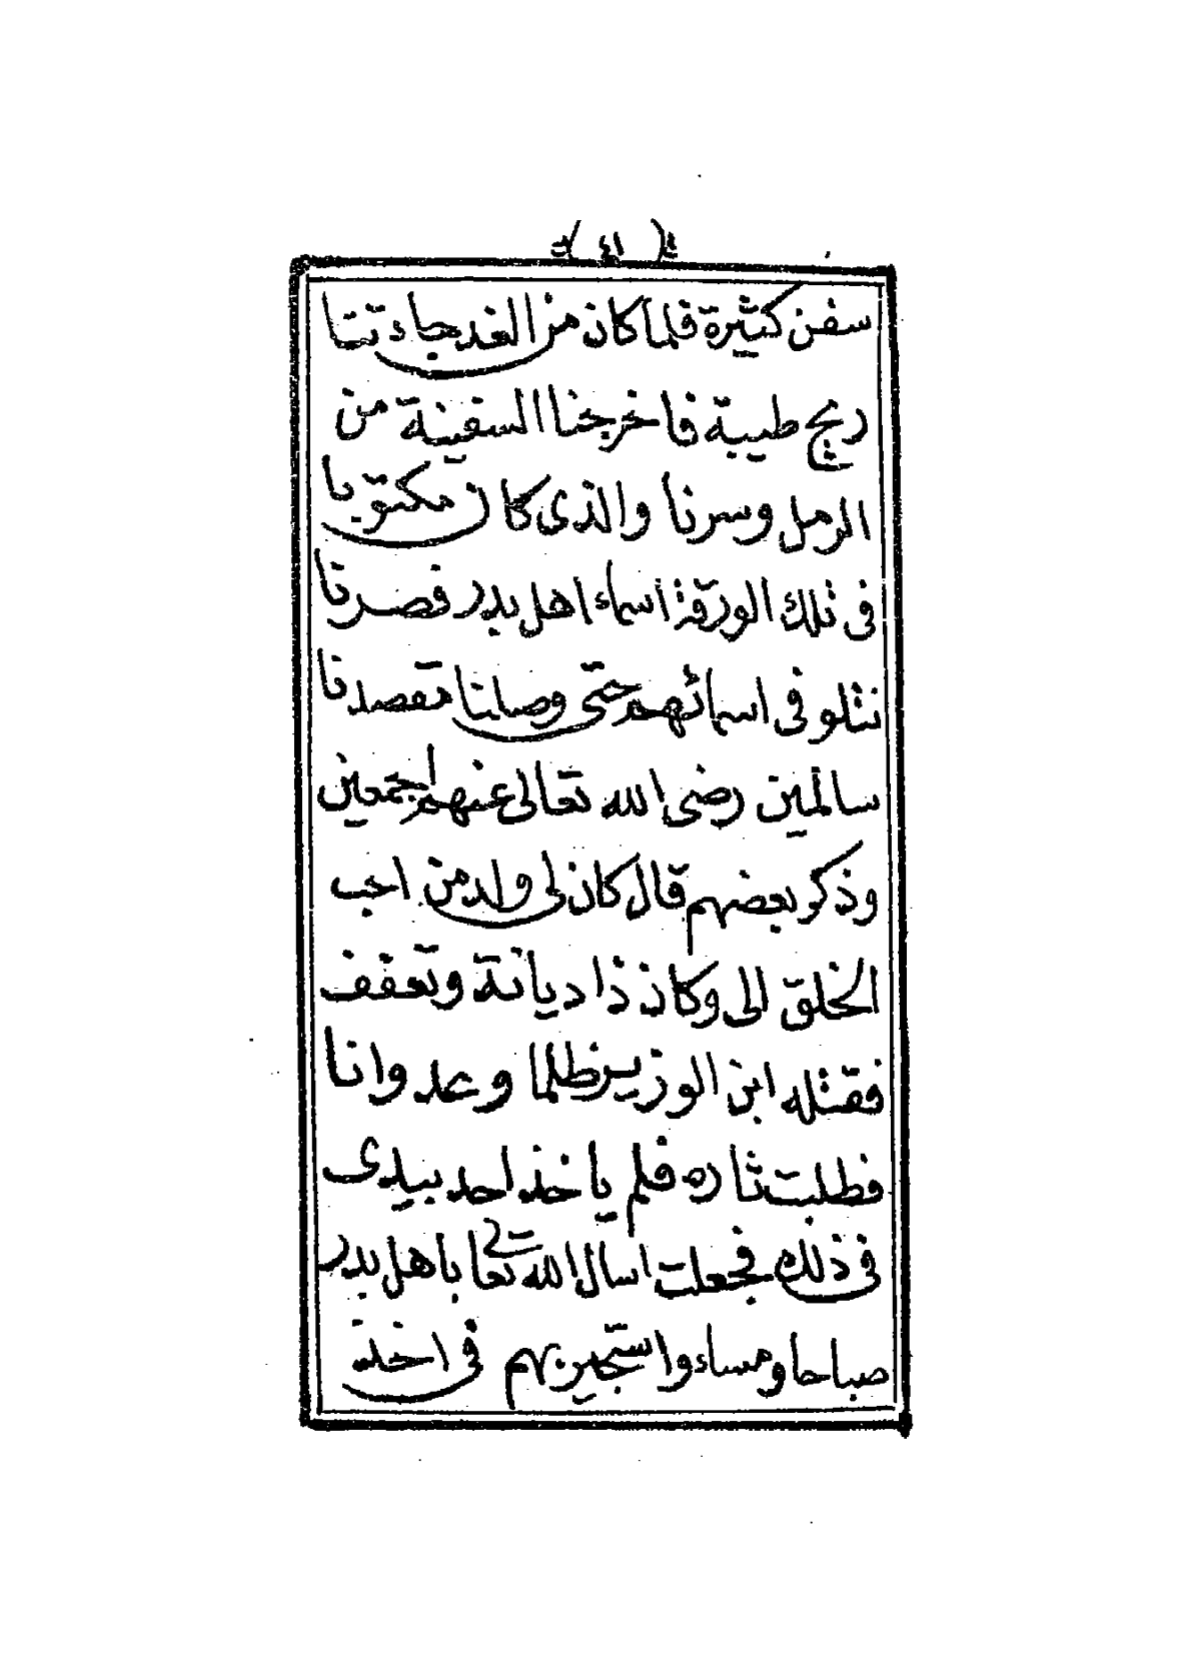 (٤١)
سفن كثيرة فلما كان من الغد جاءتنا
ريح طيبة فاخرجنا السفينة من
الرمل وسرنا والذى كان مكتوبا
فى تلك الورقة اسماء اهل بدر فصرنا
نتلو فى اسمائهم حتى وصلنا مقصدنا
سالمين رضى الله تعالى عنهم اجمعين
وذكر بعضهم قال كان لى ولد من احب
الخلق الى وكان ذا ديانة وتعفف
فقتله ابن الوزير ظلما وعدوانا
فطلبت ثاره فلم ياخذ احد بيدى
فى ذلك فجعلت اسال الله تعالى باهل بدر
صباحا ومساء واستجير بهم فى اخذ